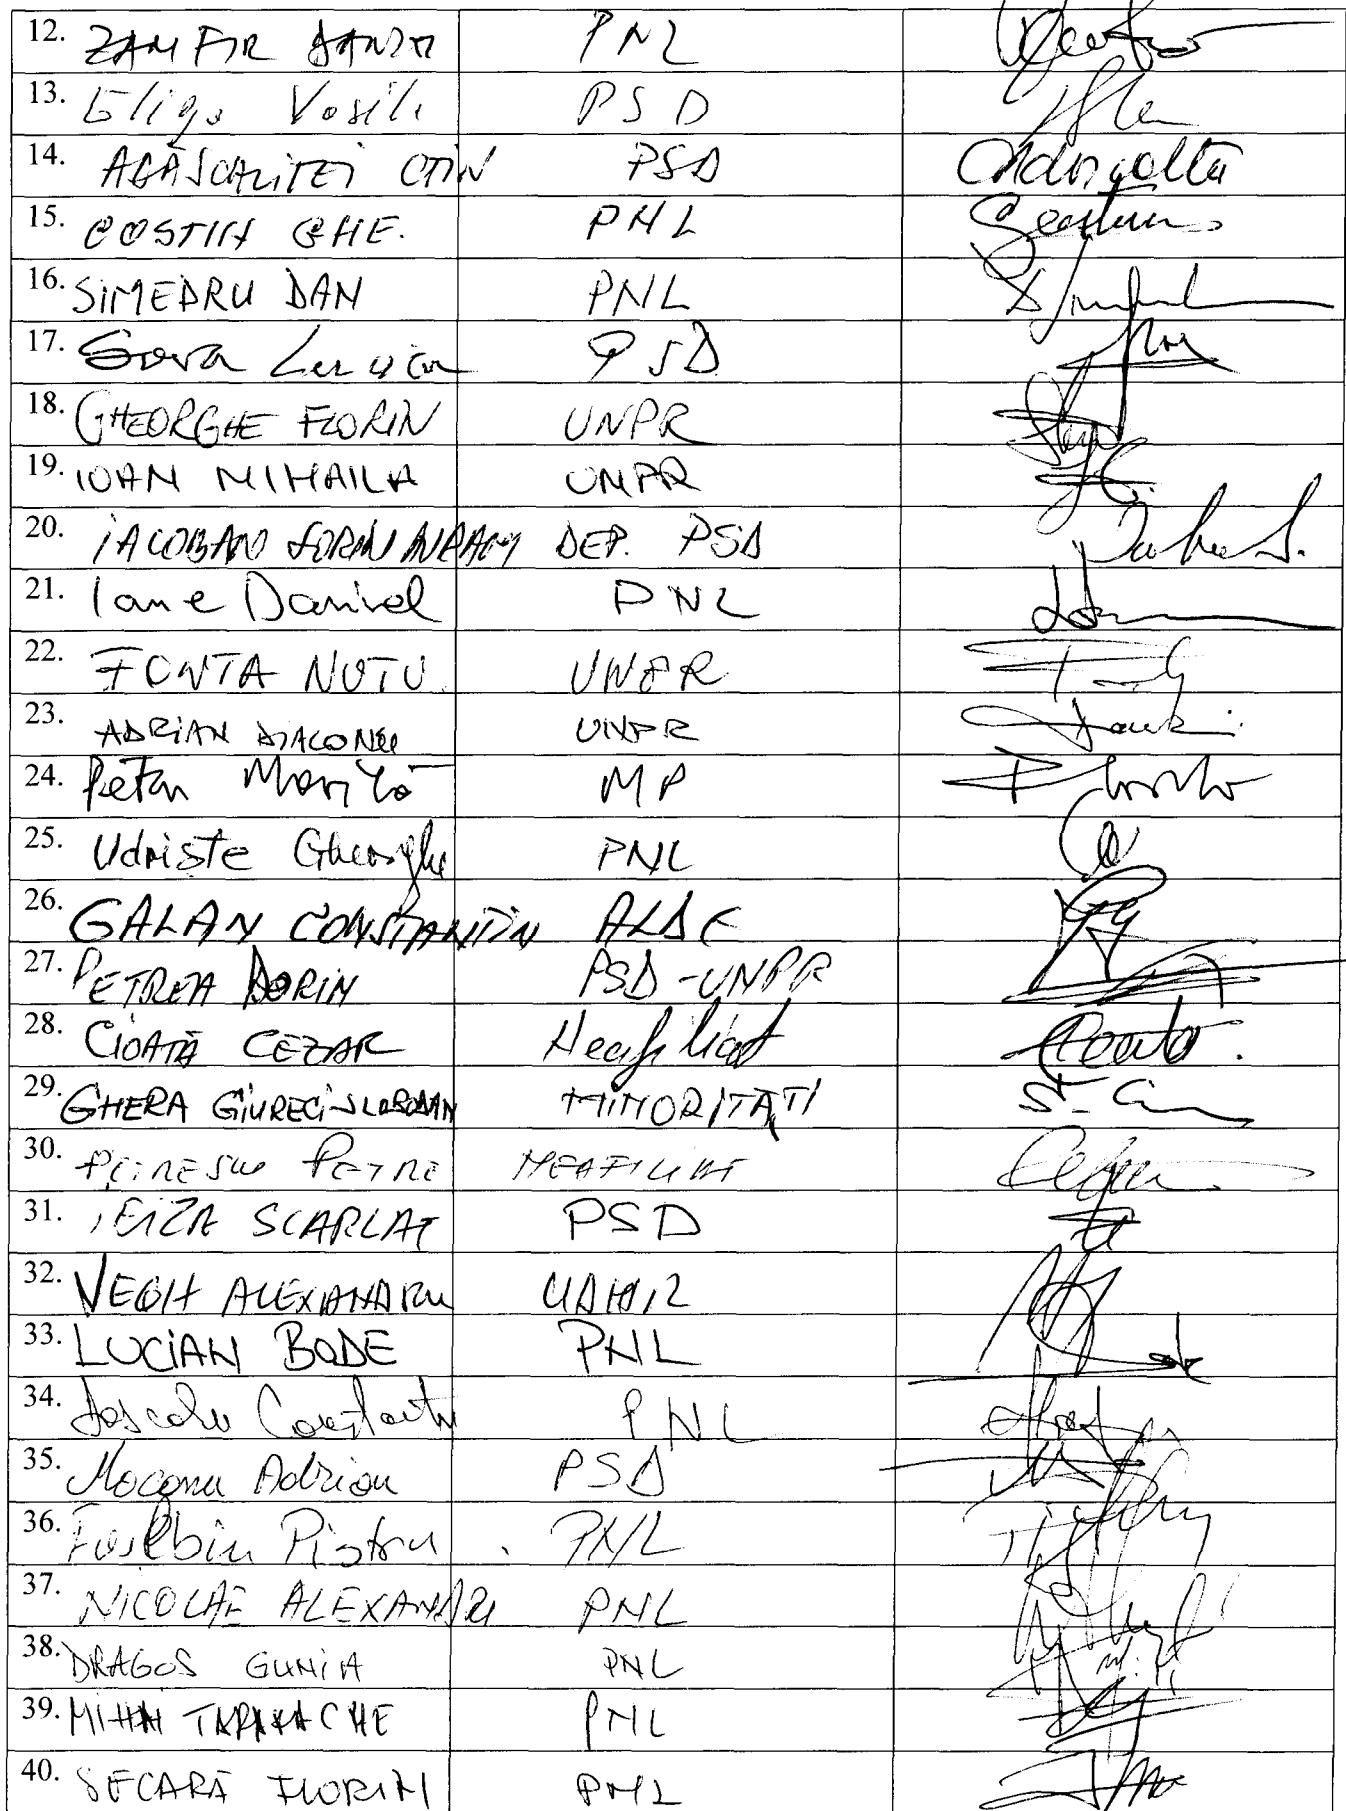 12. ZAMFIR DANIEL PNL
13. Gliga Vasile PSD
14. AGĂSCALITEI CTIN PSD
15. COSTIN GHE. PNL
16. SIMEDRU DAN PNL
17. Sova Lucian PSD
18. GHEORGHE FLORIN UNPR
19. IOAN MIHAILA UNPR
20. IACOBAN SORIN AVRAM DEP. PSD
21. Iane Daniel PNL
22. FONTA NUTU UNPR
23. ADRIAN DIACONU UNPR
24. Petru Movilă MP
25. Udriste Gheorghe PNL
26. GALAN CONSTANTIN ALDE
27. PETREA DORIN PSD-UNPR
28. CIOATĂ CEZAR Neafiliat
29. GHERA GIURECI SLOBODAN MINORITATI
30. PETRESCU PETRE NEAFILIAT
31. IRIZA SCARLAT PSD
32. VEGH ALEXANDRU UDMR
33. LUCIAN BODE PNL
34. Dascalu Constantin PNL
35. Mocanu Adrian PSD
36. Eusebiu Pistru PNL
37. NICOLAE ALEXANDRI PNL
38. DRAGOS GUNIA PNL
39. MIHAI TARARACHE PNL
40. SECARĂ FLORIN PNL